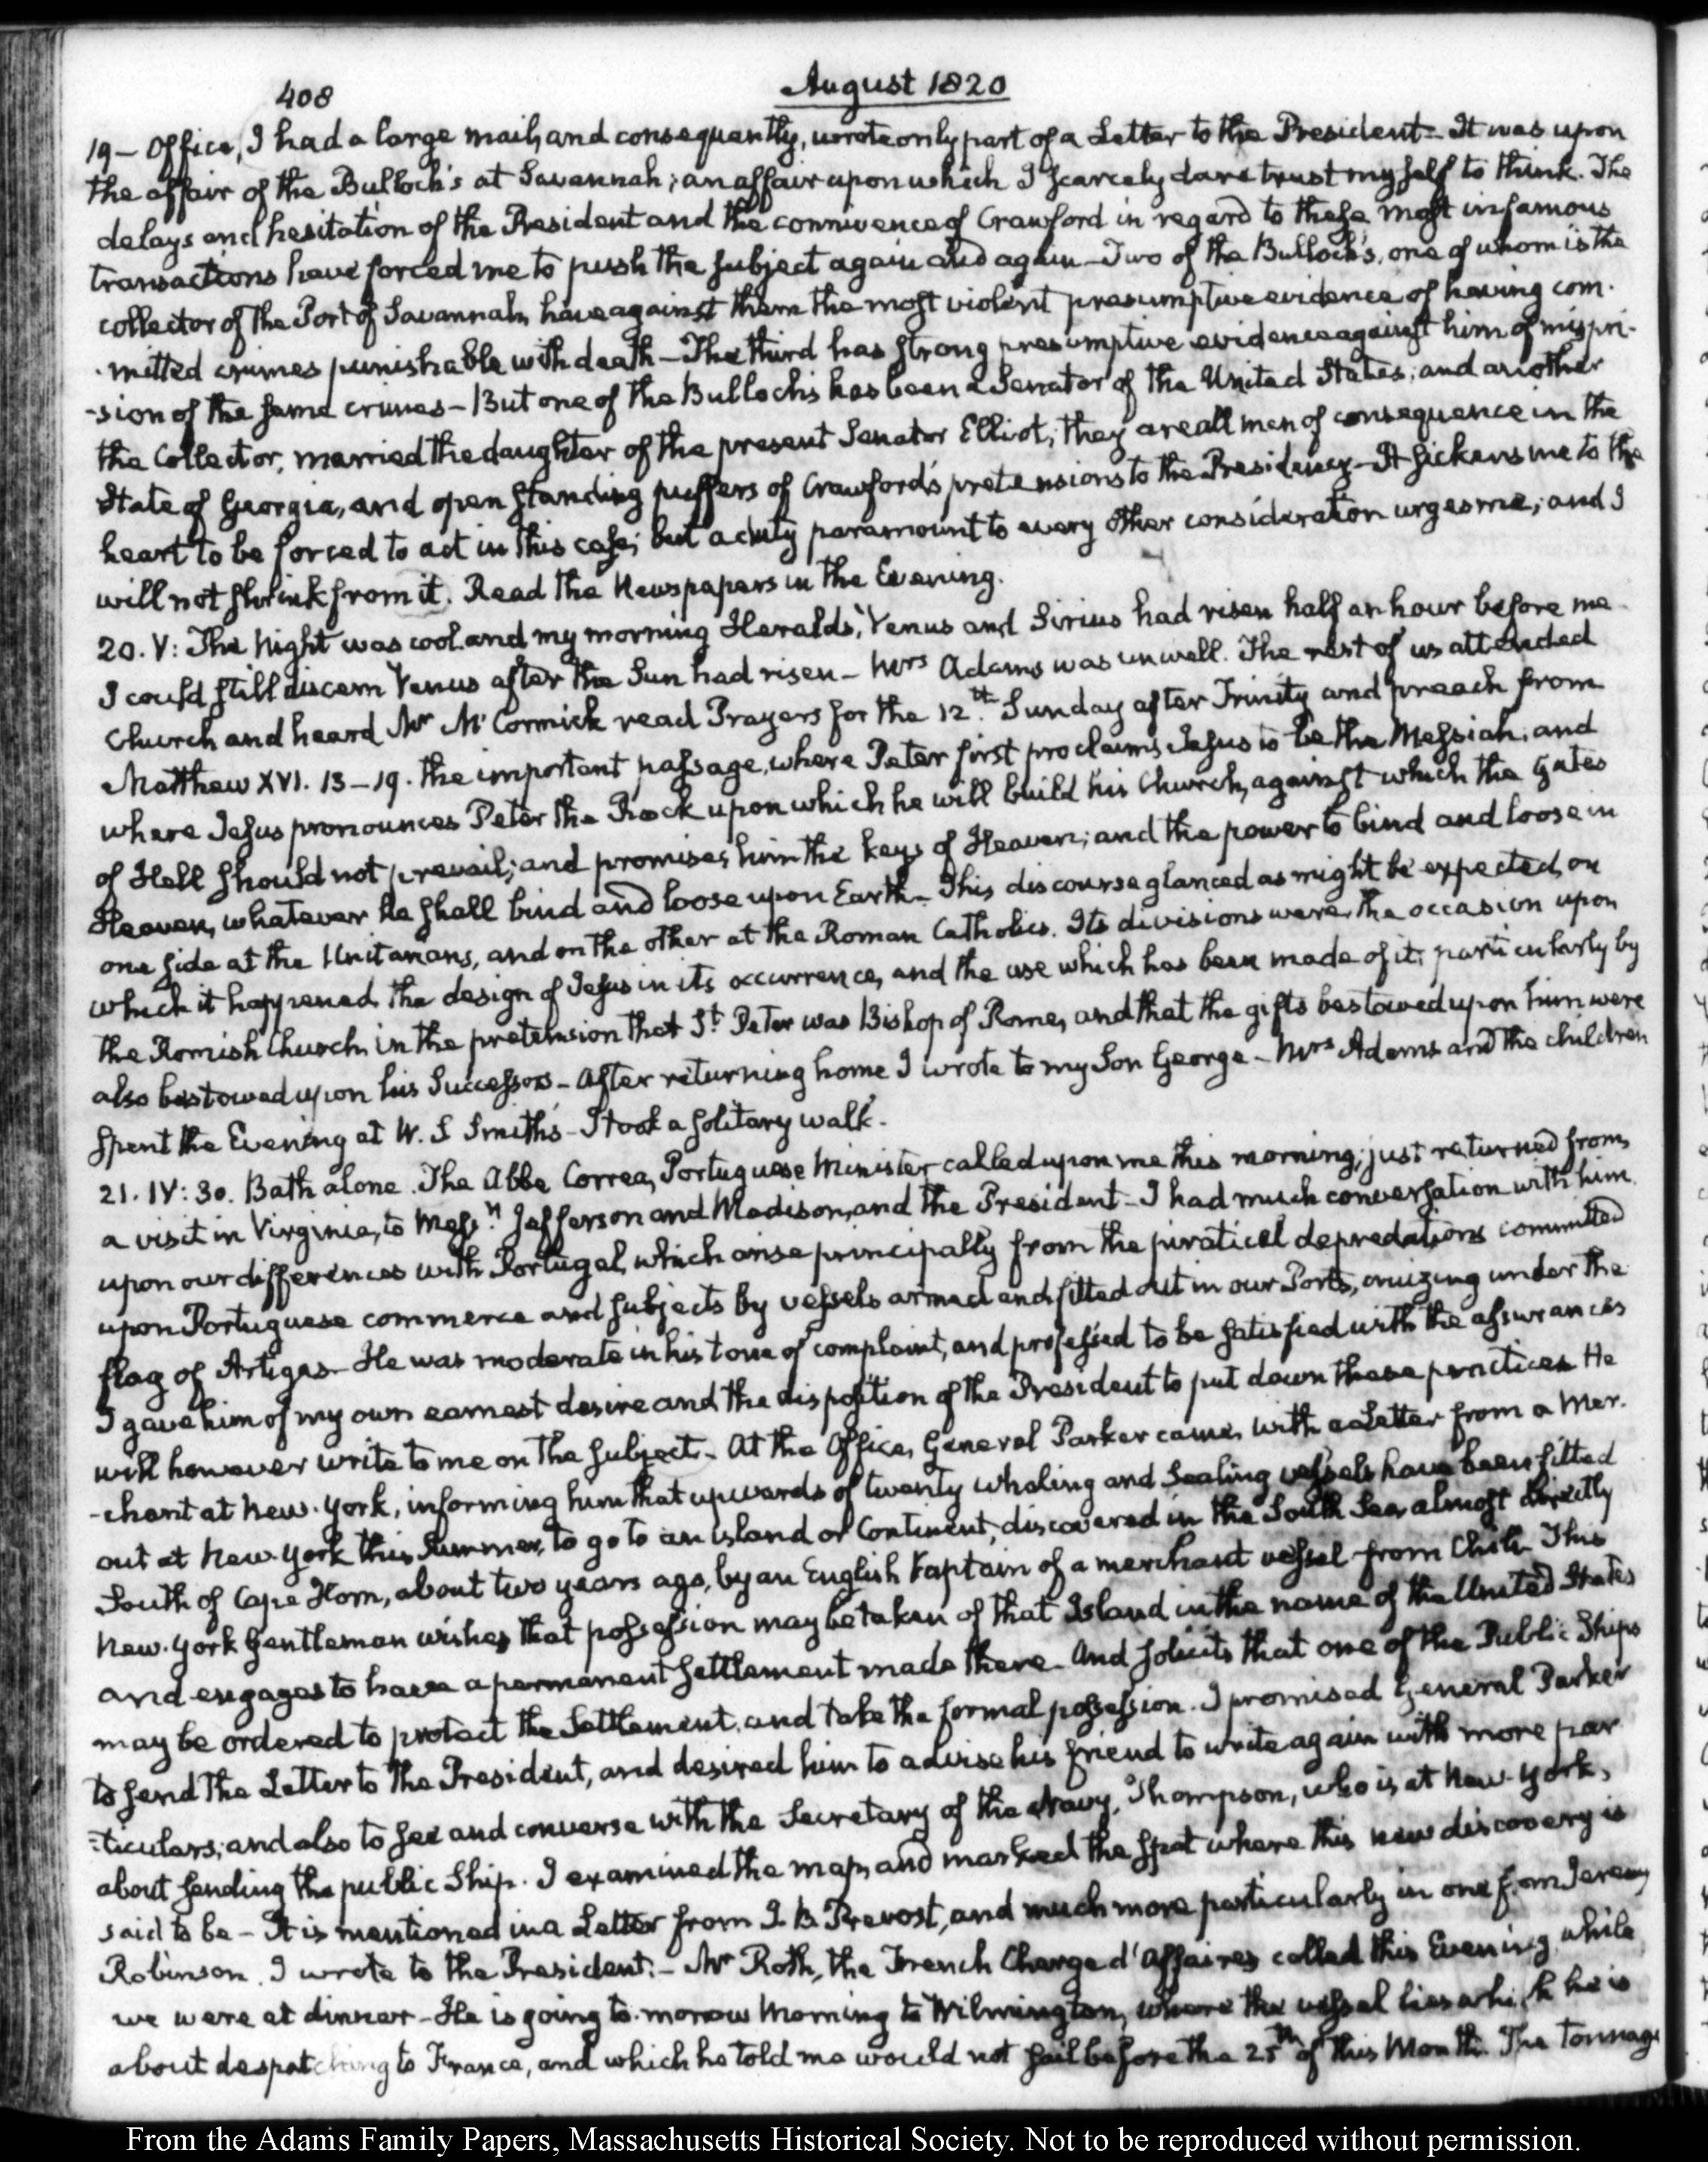 408
August 1820
19 – Office, I had a large mail, and consequently, wrote only part of a Letter to the President – It was upon
the affair of the Bulloch's at Savannah; an affair upon which I scarcely dare trust myself to think. The
delays and hesitation of the President and the connivence of Crawford in regard to these most infamous
transactions have forced me to push the subject again and again – Two of the Bulloch's, one of whom is the
collector of the Port of Savannah, have against them the most violent presumptive evidence of having com-
-mitted crimes punishable with death – The third has strong presumptive evidence against him of mispri-
-sion of the same crimes – But one of the Bulloch's has been a Senator of the United States; and another
the Collector, married the daughter of the present Senator Elliot; they are all men of consequence in the
State of Georgia, and open standing puffers of Crawford's pretensions to the Presidency – It sickens me to the
heart to be forced to act in this case; but a duty paramount to every other consideration urges me; and I
will not shrink from it. Read the Newspapers in the Evening.
20. V: The Night was cool and my morning Heralds, Venus and Sirius had risen half an hour before me
I could still discern Venus after the Sun had risen – Mrs Adams was unwell. The rest of us attended
Church and heard Mr McCormick read Prayers for the 12th. Sunday after Trinity and preach from
Matthew XVI. 13–19. the important passage, where Peter first proclaims Jesus to be the Messiah; and
where Jesus pronounces Peter the Rock upon which he will build his Church, against which the Gates
of Hell should not prevail; and promises him the keys of Heaven; and the power to bind and loose in
Heaven, whatever he shall bind and loose upon Earth – This discourse glanced as might be expected, on
one side at the Unitarians, and on the other at the Roman Catholics. Its divisions were, the occasion upon
which it happened, the design of Jesus in its occurrence, and the use which has been made of it; particularly by
the Romish Church, in the pretension that St Peter was Bishop of Rome, and that the gifts bestowed upon him were
also bestowed upon his Successors – After returning home I wrote to my Son George – Mrs Adams and the children
spent the Evening at W. S Smith's – I took a solitary walk.
21. IV: 30. Bath alone. The Abbe Correa, Portuguese Minister called upon me this morning; just returned from
a visit in Virginia, to Messrs Jefferson and Madison, and the President – I had much conversation with him
upon our differences with Portugal, which arise principally from the piratical depredations committed
upon Portuguese commerce and subjects by vessels armed and fitted out in our Ports, cruizing under the
flag of Artigas – He was moderate in his tone of complaint, and professed to be satisfied with the assurances
I gave him of my own earnest desire and the disposition of the President to put down these practices He
will however write to me on the subject. – At the Office, General Parker came, with a Letter from a Mer-
-chant at New-York, informing him that upwards of twenty whaling and Sealing vessels have been fitted
out at New-York this Summer, to go to an island or Continent, discovered in the South Sea, almost directly
South of Cape Horn, about two years ago, by an English Captain of a merchant vessel from Chili – This
New-York Gentleman wishes that possession may be taken of that Island in the name of the United States
and engages to have a permanent settlement made there – And solicits that one of the Public Ships
may be ordered to protect the Settlement, and take the formal possession. I promised General Parker
to send the Letter to the President, and desired him to advise his friend to write again with more par-
-ticulars; and also to see and converse with the Secretary of the Navy, Thompson, who is at New-York,
about sending the public Ship. I examined the map, and marked the spot where this new discovery is
said to be – It is mentioned in a Letter from J. B. Prevost, and much more particularly in one from Jeremy
Robinson. I wrote to the President. – Mr Roth, the French Charge d'Affaires called this Evening while
we were at dinner – He is going to-morrow Morning to Wilmington, where the vessel lies which he is
about despatching to France, and which he told me would not sail before the 25th of this Month. The Tonnage
From the Adams Family Papers, Massachusetts Historical Society. Not to be reproduced without permission.